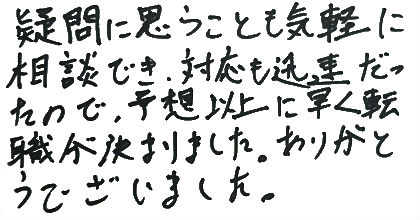 疑問に思うことも気軽に
相談でき、対応も迅速だっ
たので、予想以上に早く転
職が決まりました。ありがと
うございました。